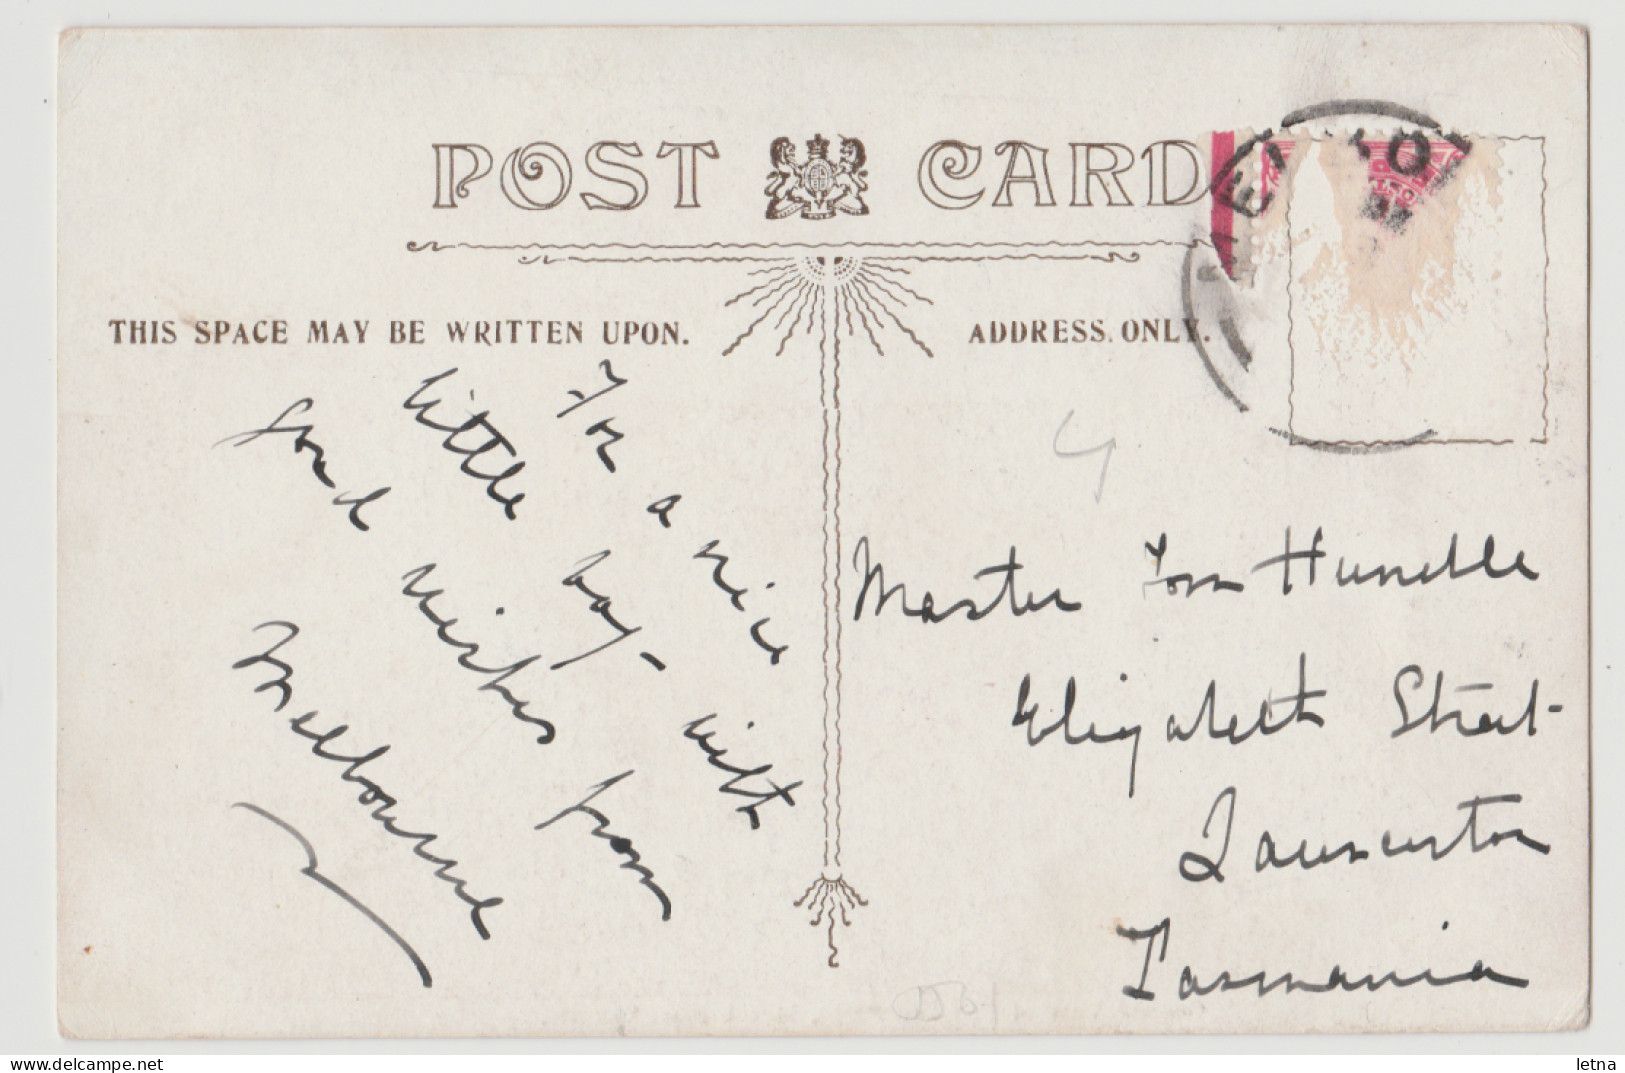 POST CARD
THIS SPACE MAY BE WRITTEN UPON.
ADDRESS ONLY.
For a nice
little boy - with
good wishes from
Melbourne
Master Tom
Elizabeth Street
Launceston
Tasmania
Bid Live
delcampe.net
letna